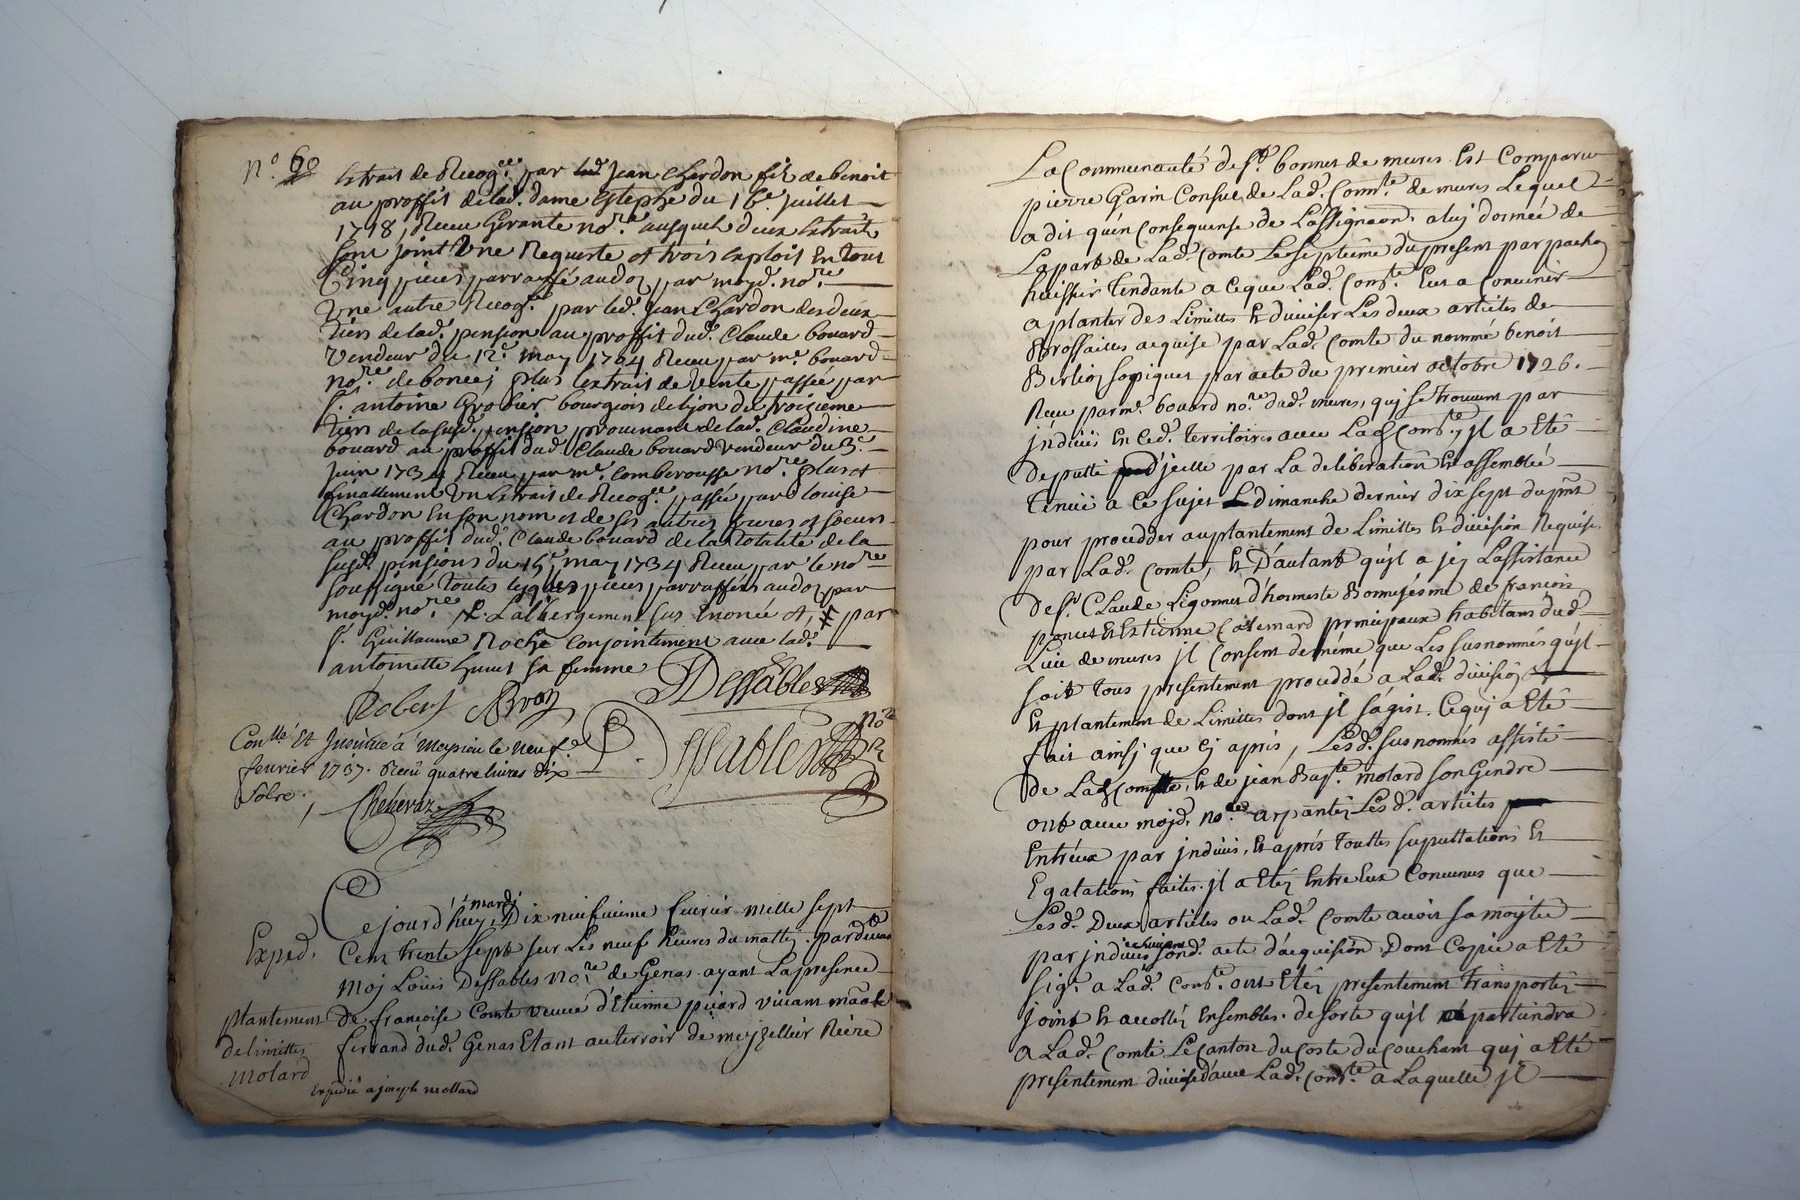 N.º 60
Extrait de Recog.ce par led. Jean Chardon fils de benoit
au proffit de lad. dame Estephe du 16.e Juillet
1718, Receu Girante no.re ausquels deux extraits
sont joint Une Requeste et trois exploit En tout
Cinq pieces parraffé audos par moyd. no.re
Une autre Recog.ce par led. Jean Chardon des deux
tiers de lad. pension au proffit dud. Claude bouard
Vendeur du 12.e may 1724 Receu par m.e bouard
no.re de boncej plus lextrait de Vente passée par
s.r antoine Grobier bourgeois de lion du troizieme
tiers de la susd. pension provenant de lad. Claudine
bouard au proffit dud. Claude bouard Vendeur du 3.e
Juin 1734 Receu par m.e Comberousse no.re plus et
finallement Un Extrait de Recog.ce passé par d. louise
Chardon En son nom et de ses autres freres et soeurs
au proffit dud. Claude bouard de la totalité de la
susd. pensions du 15.e may 1734 Receu par le no.re
soussigné toutes lesquelles pieces parraffées audos par
moyd. no.re L'albergement sus Enoncé et, par
s.r Guillaume Roche Conjointement avec lad.
antoinette huvet sa femme
Robert Dessables
Con.llé Et Insinué a Meysieu le neuf.e
fevrier 1737. Receu quatre livres dix
solz.
Dessables no.re
Chehevaz
Ce jourd'huy mardj Dix neufvieme fevrier mille sept
Exped.
Cent trente Sept sur Les neuf heures du matin. par devant
Moj Loüis Dessables No.re de Genas ayant La presence
plantement
de françoise Comte veuve d'Etienne picard vivant
de limittes
ferrand dud. Genas Etant au terroir de meyzellier Riere
Molard
Expedié a joseph mollard
La Communauté de s.t bonnet de mures Est Comparu
pierre Garin Consul de Lad. Comm.té de mures Lequel
a dit qu'en Consequense de L'assignaon. a luj donnée de
La part de Lad. Comte Le septieme du present par pachoz
huissier Tendante a Ceque Lad. Com.té Eut a Convenir
a planter des Limittes Et diviser Les deux articles de
Brossailles acquise par Lad. Comte du nommé benoit
Berlioz sopiquet par acte du premier octobre 1726.
Receu par m.e bouard no.re dud. mures, quj se trouvent par
indivis En led. territoires avec Lad. Com.té, jl a Eté
deputté d'jcelle par La deliberation Et assemblée
tenuë a Ce sujet Dimanche dernier dix sept du p.nt
pour procedder au plantement de Limittes Et division Requise
par Lad. Comte, Et D'autant qu'jl a jcj L'assistance
de s.r Claude Ligonnet d'homeste de françois
poncet Et Estienne Cotemard principaux habitans dud.
Lieu de mures jl Consent de même que Les susnommés qu'jl
soit tous presentement proceddé a Lad. division
Et plantement de Limittes dont jl s'agist. Cequj a Eté
fait ainsj que Cj après, Lesd. susnommés assisté
De Lad. Comte, Et de jean Bap.te molard son Gendre
ont avec mojd. no.re arpantéz Lesd. articles
Entreux par indivis, Et aprés touttes supputtations Et
Egalations faites. jl a Eté Entre Eux Convenus que
Lesd. Deux articles ou Lad. Comte avoit sa mojtié
par indivis suivant sond. acte d'acquision Dont Copie a Eté
sig.e a Lad. Com.té ont Etéz presentement transportéz
joint Et accolléz Ensembles. de sorte qu'jl apartiendra
a Lad. Comte Le Canton du Costé du Couchant quj a Eté
presentement divisé d'avec Lad. Com.té a Laquelle jl